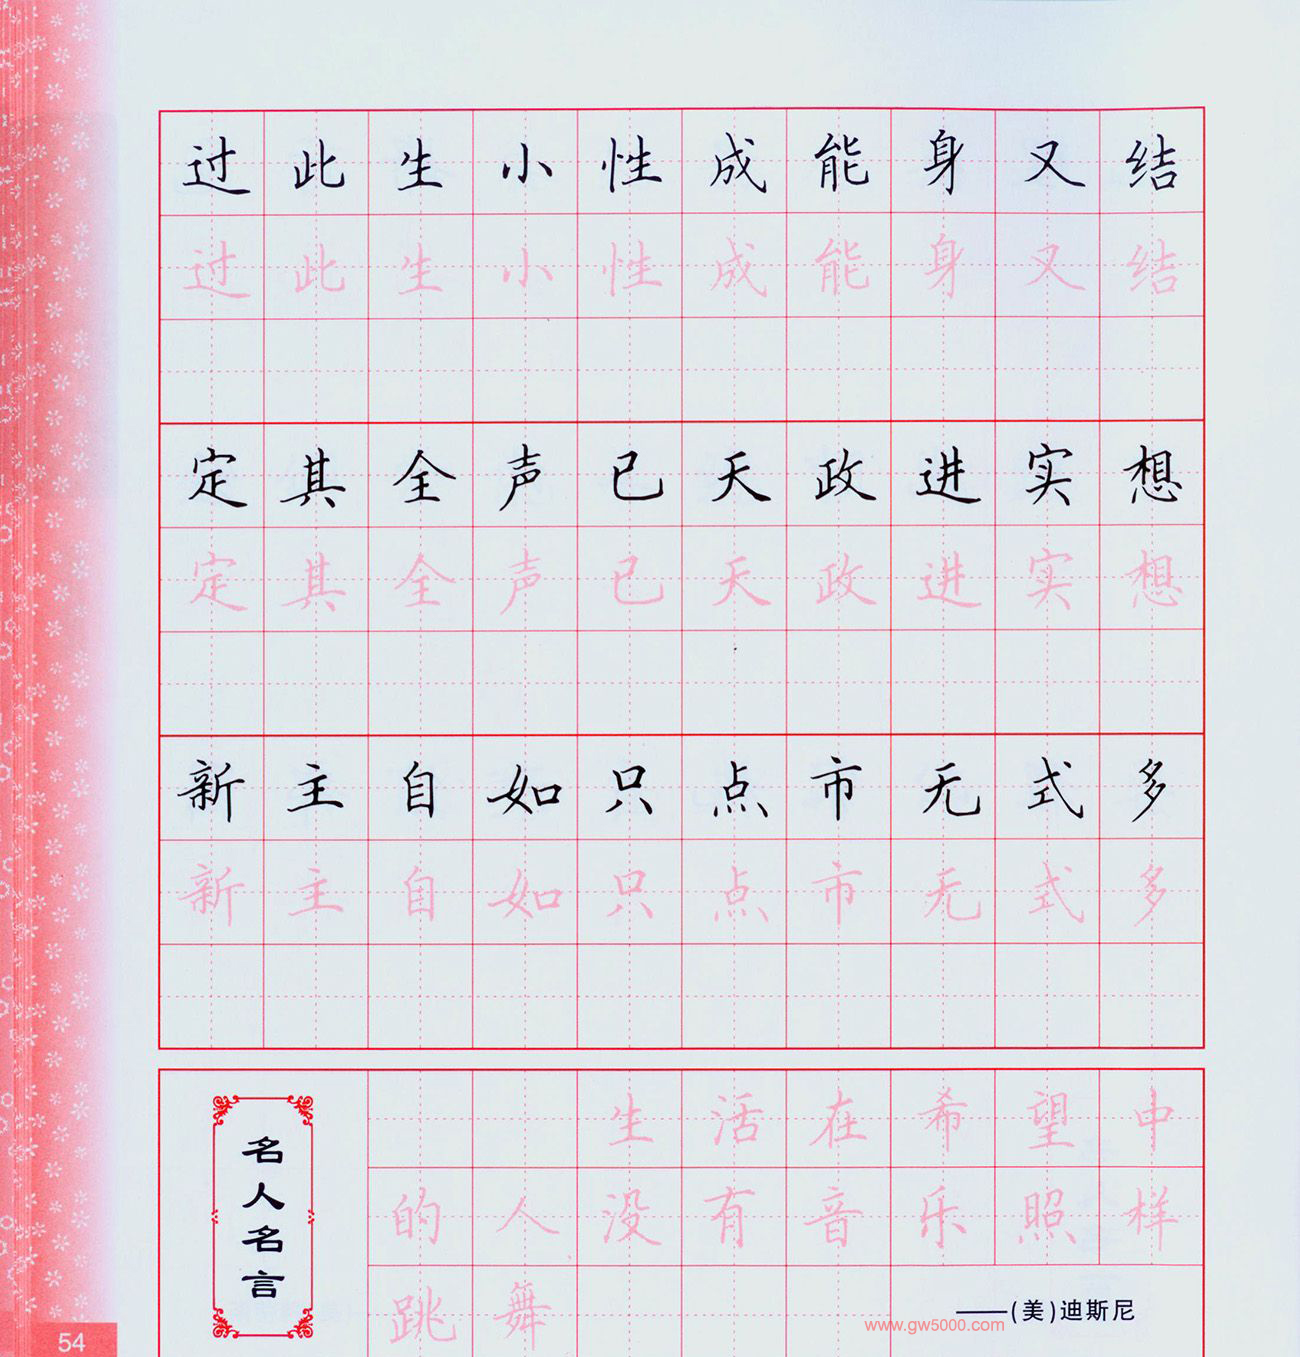 过此生小性成能身又结
过此生小性成能身又结
定其全声已天政进实想
定其全声已天政进实想
新主自如只点市无式多
新主自如只点市无式多
名人名言
生活在希望中
的人没有音乐照样
跳舞
——(美)迪斯尼
www.gw5000.com
54